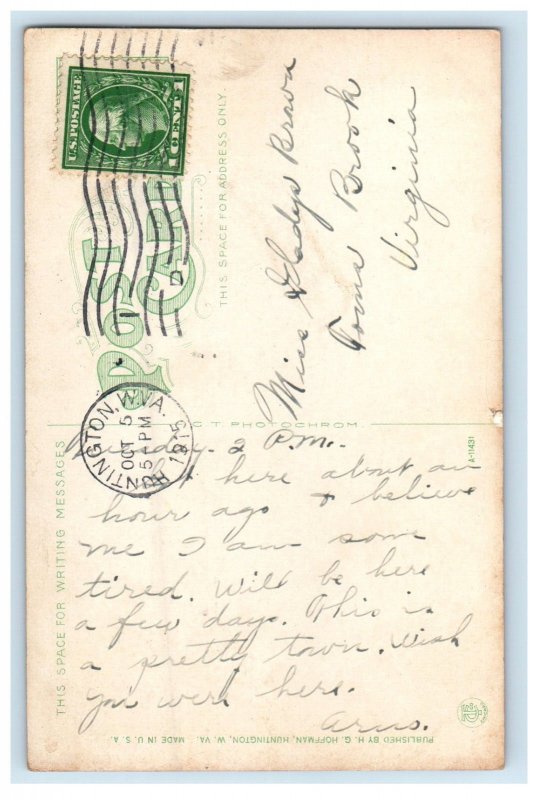 U.S. POSTAGE
1 CENT 1
HUNTINGTON, W.VA.
OCT 5
5 PM
1915
D
POST CARD
THIS SPACE FOR ADDRESS ONLY.
Miss Gladys Brown
Toms Brook
Virginia
C T PHOTOCHROM
A-11431
THIS SPACE FOR WRITING MESSAGES
Tuesday. 2 P.M.
here about an
hour ago & believe
me I am some
tired. Will be here
a few days. This is
a pretty town. Wish
you were here.
PUBLISHED BY H. G. HOFFMAN, HUNTINGTON, W. VA. MADE IN U. S. A.